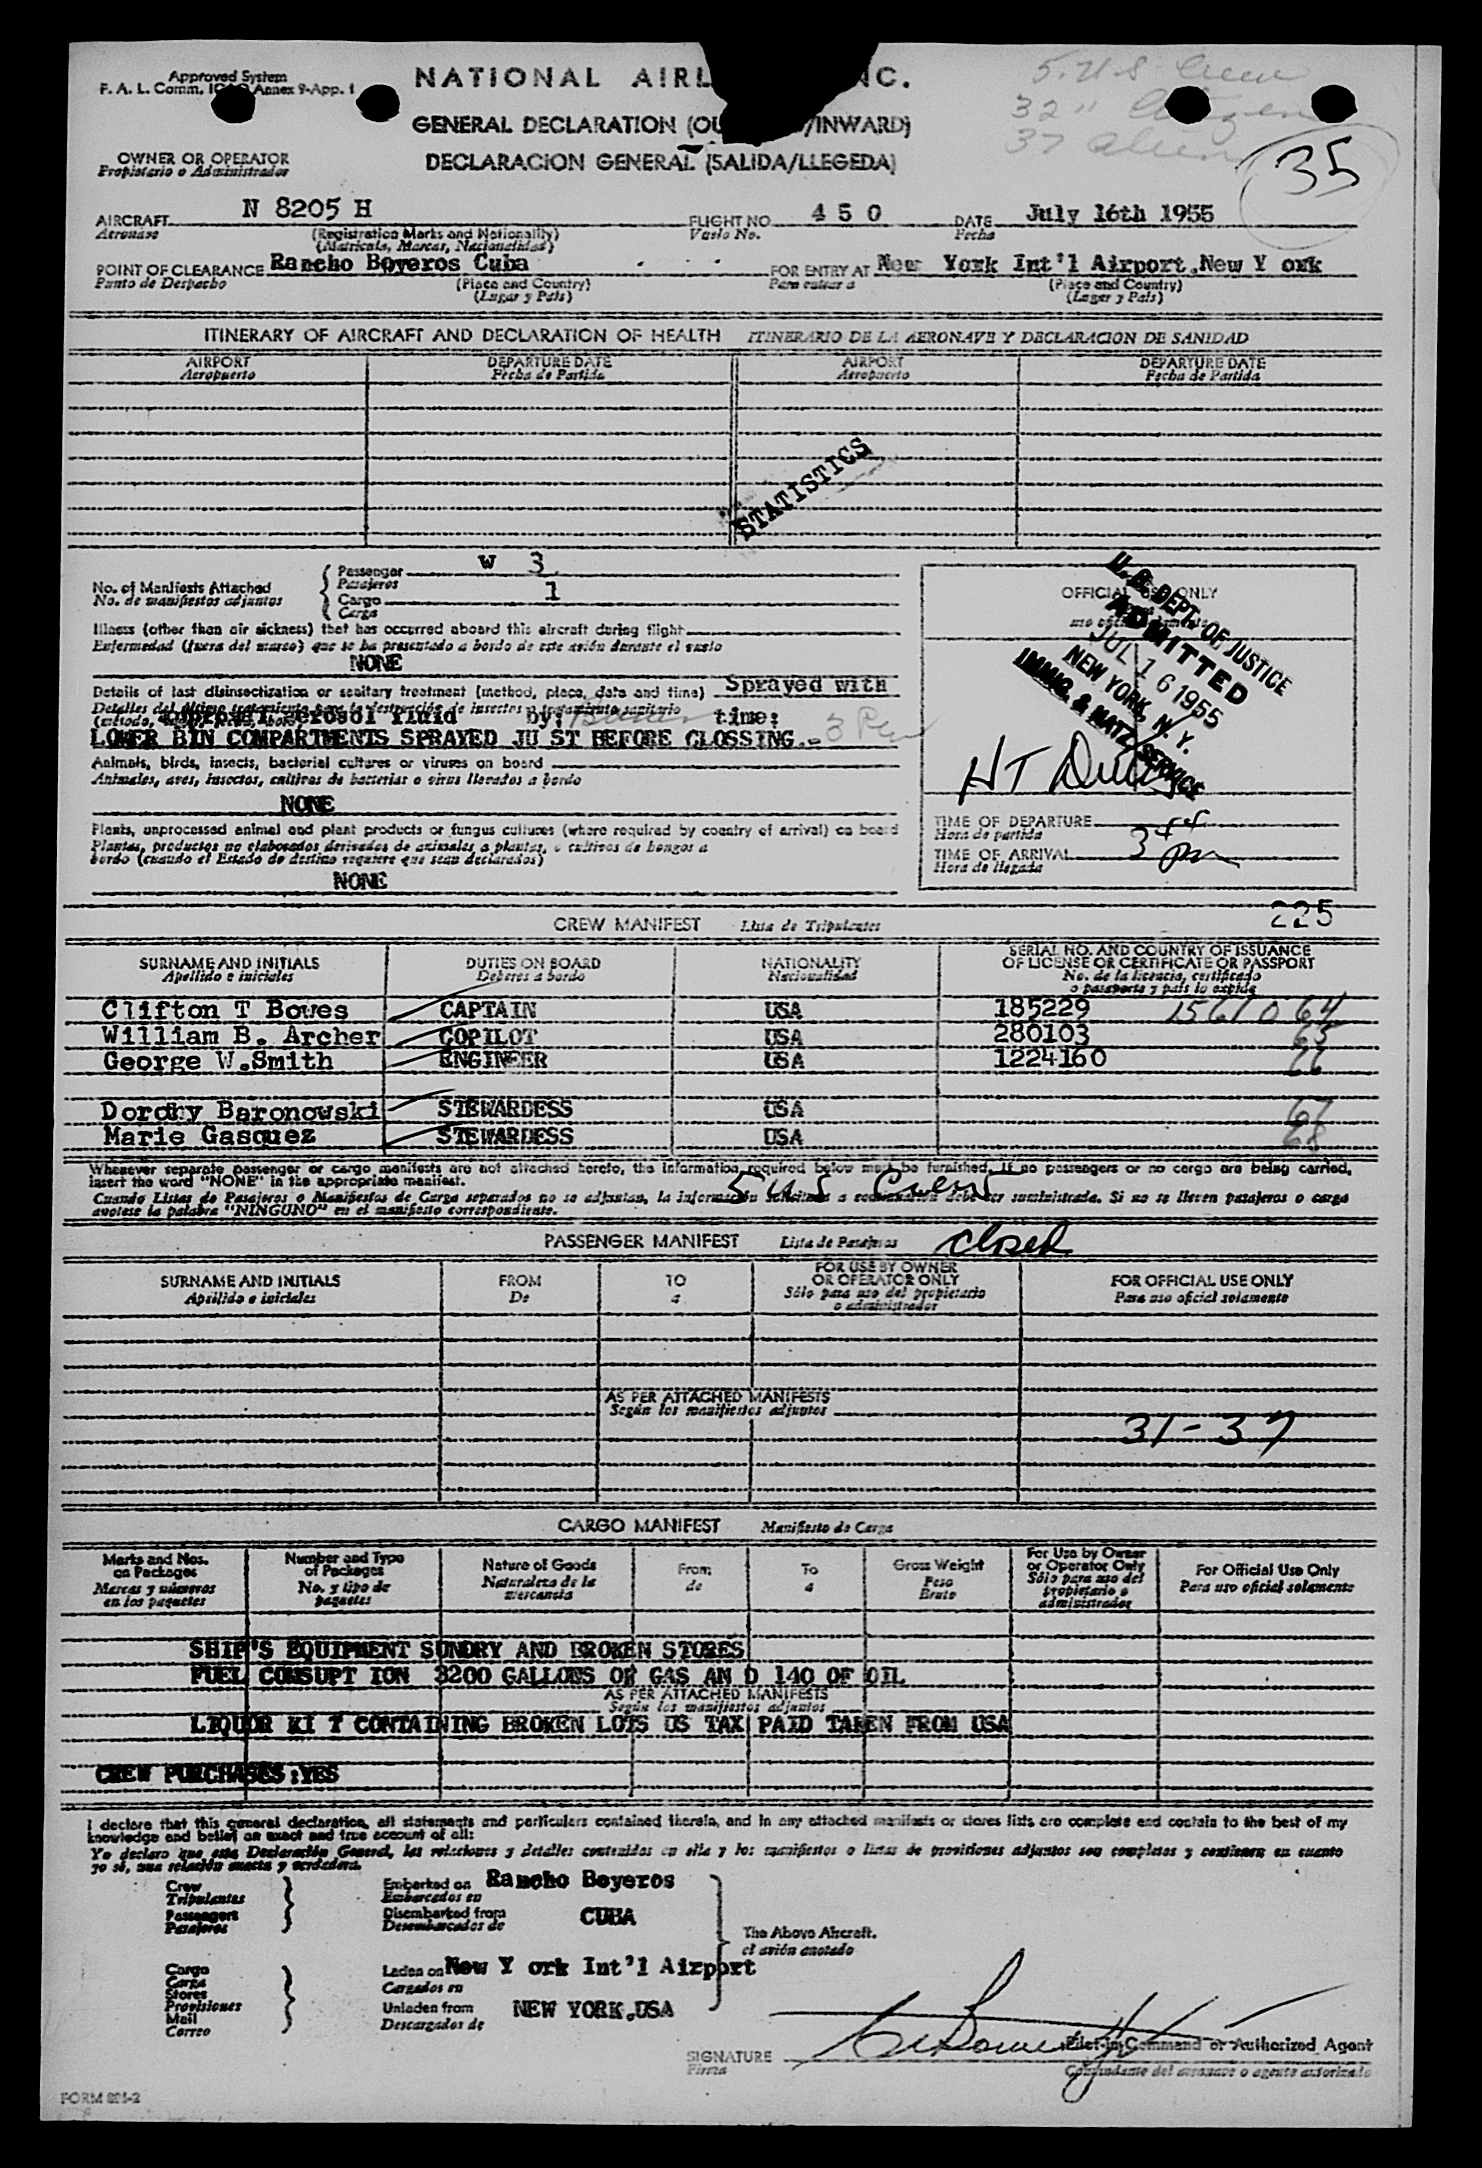 Approved System
F. A. L. Comm. Annex 9-App. 1
NATIONAL AIRL NC.
5 U S Crew
32 " Citizen
37 Alien
35
GENERAL DECLARATION (OU /INWARD)
DECLARACION GENERAL (SALIDA/LLEGEDA)
OWNER OR OPERATOR
Propietario o Administrador
AIRCRAFT N 8205 H FLIGHT NO. 4 5 0 DATE July 16th 1955
Aeronave (Registration Marks and Nationality) Vuelo No. Fecha
(Matricula, Marcas, Nacionalidad)
POINT OF CLEARANCE Rancho Boyeros Cuba FOR ENTRY AT New York Int'l Airport,New Y ork
Punto de Despacho (Place and Country) Para entrar a (Place and Country)
(Lugar y Pais) (Lugar y Pais)
ITINERARY OF AIRCRAFT AND DECLARATION OF HEALTH ITINERARIO DE LA AERONAVE Y DECLARACION DE SANIDAD
AIRPORT DEPARTURE DATE AIRPORT DEPARTURE DATE
Aeropuerto Fecha de Partida Aeropuerto Fecha de Partida
STATISTICS
No. of Manifests Attached Passenger W 3
No. de manifiestos adjuntos Pasajeros
Cargo 1
Carga
Illness (other than air sickness) that has occurred aboard this aircraft during flight
Enfermedad (fuera del mareo) que se ha presentado a bordo de este avión durante el vuelo
NONE
Details of last disinsectization or sanitary treatment (method, place, date and time) Sprayed with
Detalles del último tratamiento para la destrucción de insectos o tratamiento sanitario
approval aerosol fluid by: time:
LOWER BIN COMPARTMENTS SPRAYED JU ST BEFORE CLOSSING.-
Animals, birds, insects, bacterial cultures or viruses on board
Animales, aves, insectos, cultivos de bacterias o virus llevados a bordo
NONE
Plants, unprocessed animal and plant products or fungus cultures (where required by country of arrival) on board
Plantas, productos no elaborados derivados de animales o plantas, o cultivos de hongos a
bordo (cuando el Estado de destino requiere que sean declarados)
NONE
OFFICIAL USE ONLY
U. S. DEPT. OF JUSTICE
ADMITTED
JUL 16 1955
NEW YORK, N. Y.
IMMIG. & NATZ. SERVICE
TIME OF DEPARTURE
Hora de partida
TIME OF ARRIVAL 3 44 pm
Hora de llegada
225
CREW MANIFEST Lista de Tripulantes
SURNAME AND INITIALS DUTIES ON BOARD NATIONALITY SERIAL NO. AND COUNTRY OF ISSUANCE
OF LICENSE OR CERTIFICATE OR PASSPORT
Apellido e iniciales Deberes a bordo Nacionalidad No. de la licencia, certificado
o pasaporte y pais lo expide
Clifton T Bowes CAPTAIN USA 185229 15610 64
William B. Archer COPILOT USA 280103 65
George W.Smith ENGINEER USA 1224160 66
Dorothy Baronowski STEWARDESS USA 67
Marie Gasquez STEWARDESS USA 68
Whenever separate passenger or cargo manifests are not attached hereto, the information required below must be furnished. If no passengers or no cargo are being carried,
insert the word "NONE" in the appropriate manifest.
5 U S Crew
Cuando Listas de Pasajeros o Manifiestos de Carga separados no se adjuntan, la información solicitada a continuación debe ser suministrada. Si no se lleven pasajeros o carga
anotese la palabra "NINGUNO" en el manifiesto correspondiente.
PASSENGER MANIFEST Lista de Pasajeros closed
SURNAME AND INITIALS FROM TO FOR USE BY OWNER
OR OPERATOR ONLY FOR OFFICIAL USE ONLY
Apellido e iniciales De a Sólo para uso del propietario
o administrador Para uso oficial solamente
AS PER ATTACHED MANIFESTS
Según los manifiestos adjuntos
31-37
CARGO MANIFEST Manifiesto de Carga
Marks and Nos.
on Packages
Marcas y números
en los paquetes
Number and Type
of Packages
No. y tipo de
paquetes
Nature of Goods
Naturaleza de la
mercancia
From
de
To
a
Gross Weight
Peso
Bruto
For Use by Owner
or Operator Only
Sólo para uso del
propietario o
administrador
For Official Use Only
Para uso oficial solamente
SHIP'S EQUIPMENT SUNDRY AND BROKEN STORES
FUEL CONSUPT ION 3200 GALLONS OF GAS AN D 140 OF OIL
AS PER ATTACHED MANIFESTS
Según los manifiestos adjuntos
LIQUOR KI T CONTAINING BROKEN LOTS US TAX PAID TAKEN FROM USA
CREW PURCHASES:YES
I declare that this general declaration, all statements and particulars contained therein, and in any attached manifests or stores lists are complete and contain to the best of my
knowledge and belief an exact and true account of all:
Yo declaro que esta Declaración General, las relaciones y detalles contenidos en ella y los manifiestos o listas de provisiones adjuntos son completos y contienen en cuanto
yo sé, una relación exacta y verdadera.
Crew
Tripulantes
Passengers
Pasajeros
Embarked on Rancho Boyeros
Embarcados en
Disembarked from CUBA
Desembarcados de
The Above Aircraft.
el avión anotado
Cargo
Carga
Stores
Provisiones
Mail
Correo
Laden on New Y ork Int'l Airport
Cargados en
Unladen from NEW YORK,USA
Descargados de
SIGNATURE Pilot-in-Command or Authorized Agent
Firma Comandante del aeronave o agente autorizado